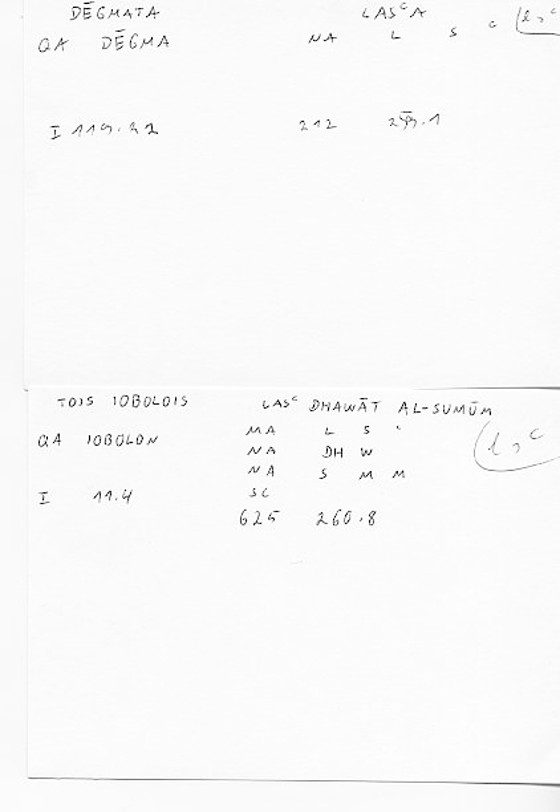 DĒGMATA LASᶜA
QA DĒGMA NA L S ᶜ (lsᶜ
I 119.21 212 1
TOIS IOBOLOIS LASᶜ DHAWĀT AL-SUMŪM
QA IOBOLON MA L S ᶜ (lsᶜ
NA DH W
NA S M M
I 11.4 SC
625 260.8